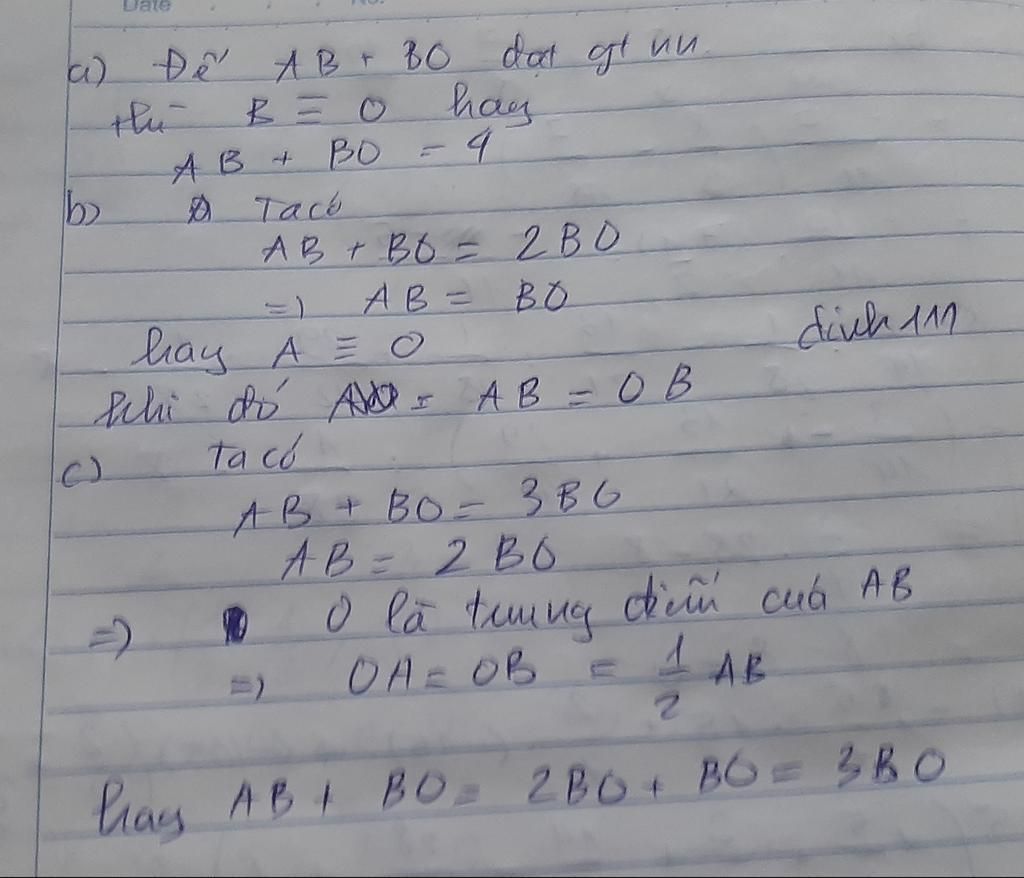 Date
No.
a) Để AB + BO đạt gt nn
thì B ≡ O hay
AB + BO = 4
b) Ta có
AB + BO = 2BO
=) AB = BO
hay A ≡ O
dinh 111
khi đó = AB = OB
c) Ta có
AB + BO = 3BO
AB = 2BO
=) O là trung điểm của AB
=) OA = OB = 1/2 AB
hay AB + BO = 2BO + BO = 3BO